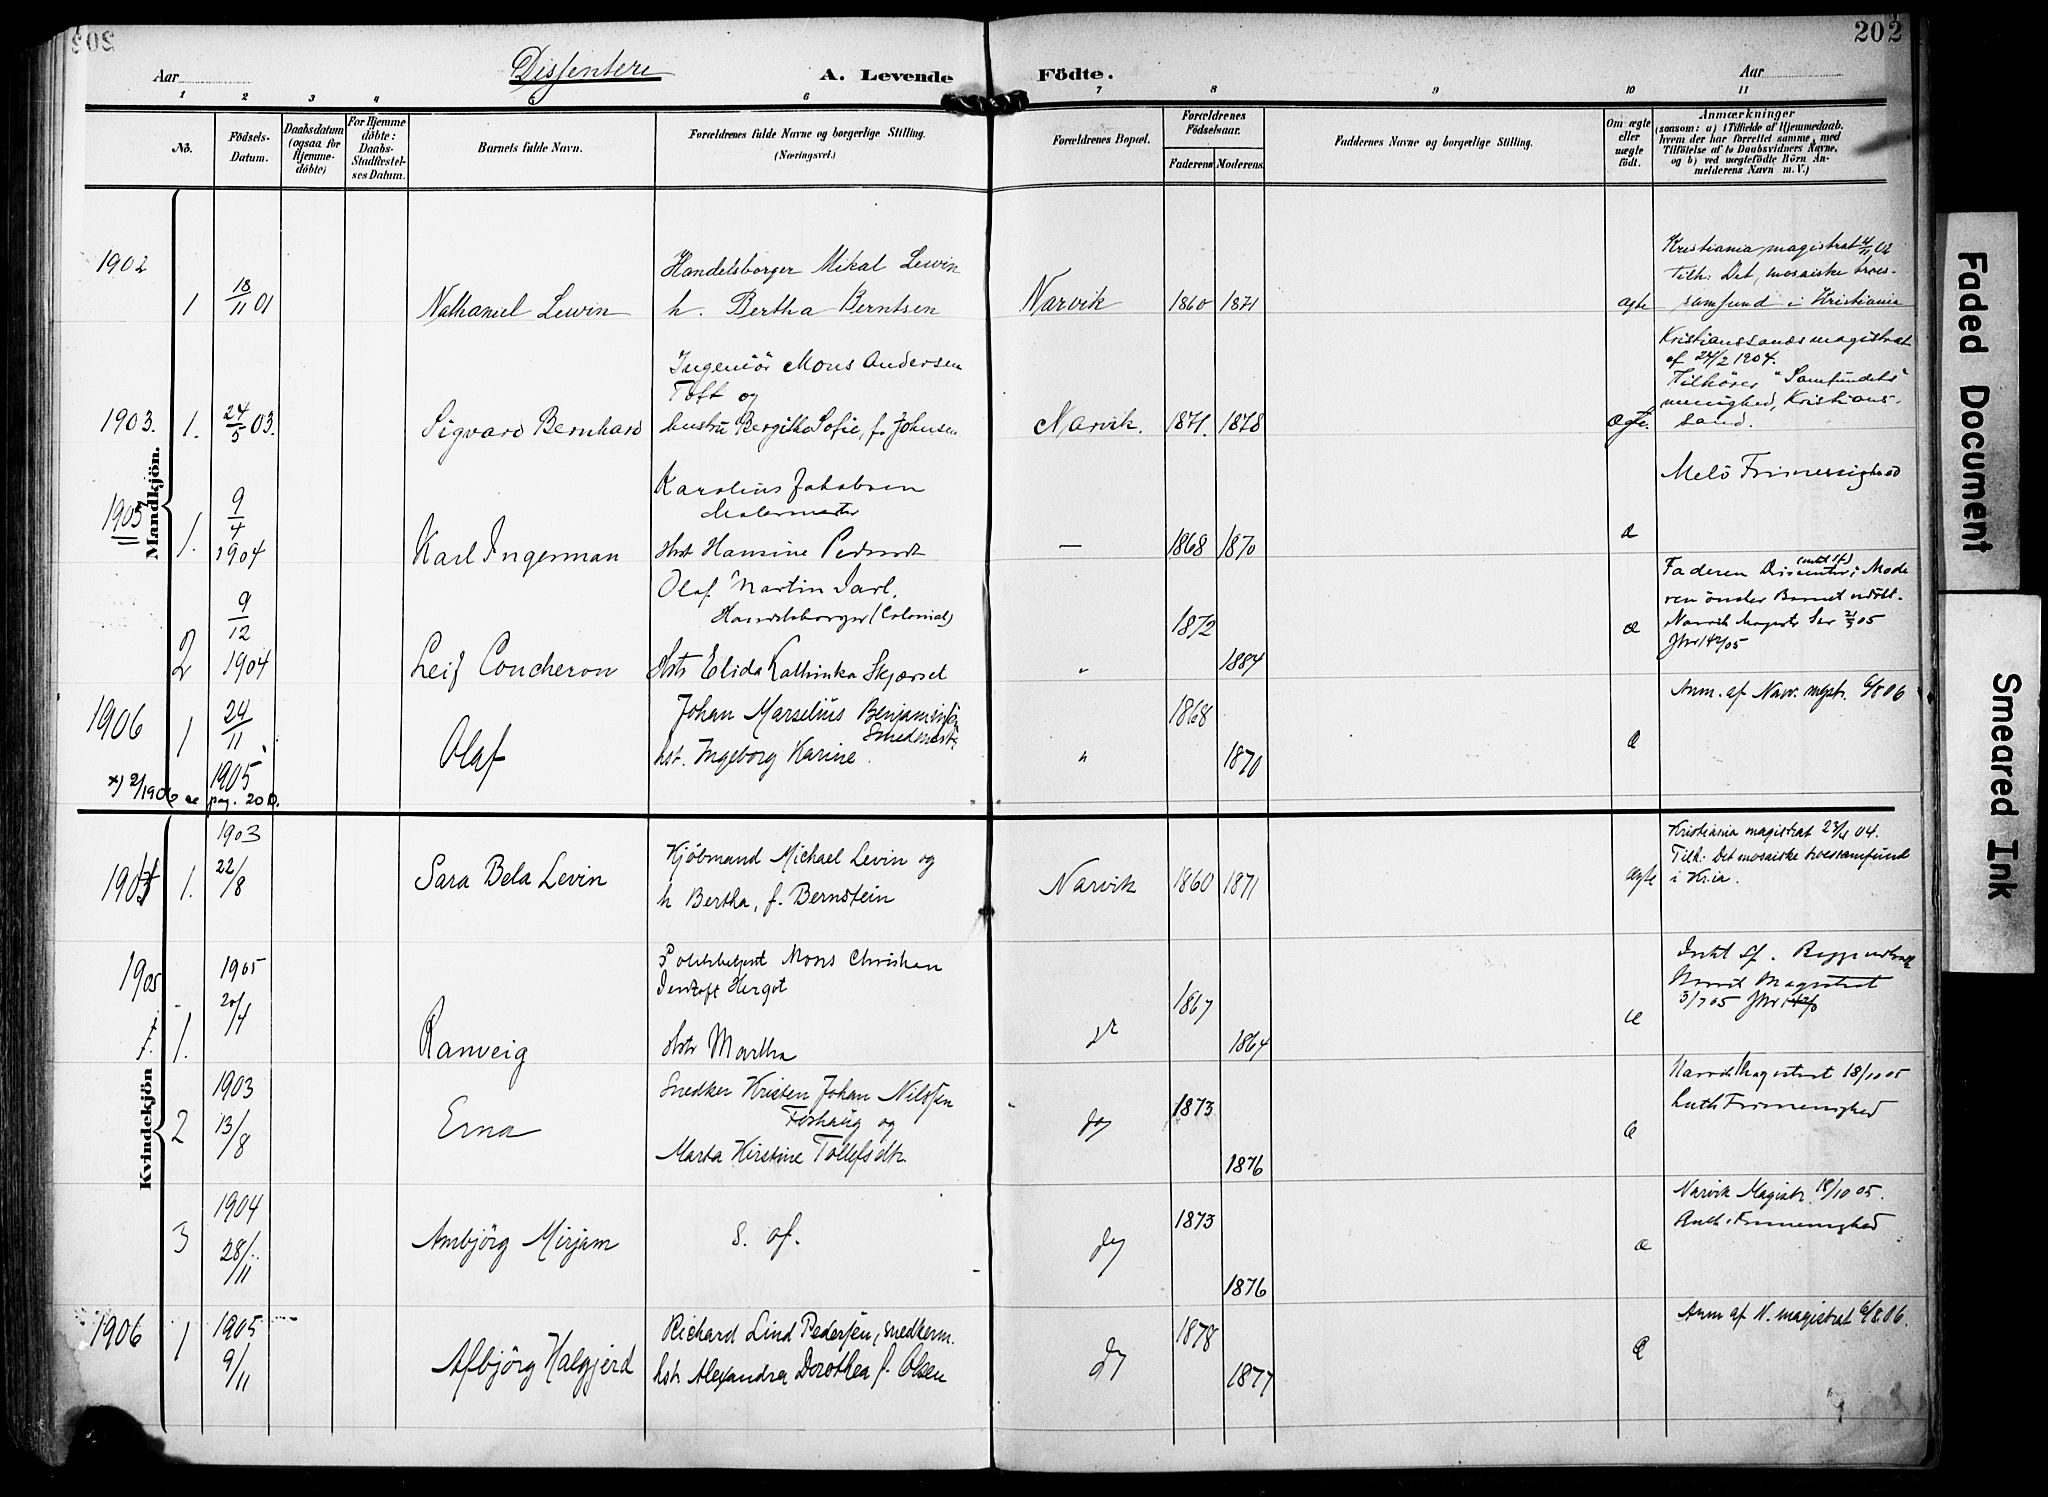 202
Aar
Dissentere
A. Levende Födte.
Aar
1 2 3 4 5 6 7 8 9 10 11
No.
Födsels-
Datum.
Daabsdatum
(ogsaa for
Hjemme-
döbte)
For Hjemme
döbte:
Daabs-
Stadfæstel-
ses Datum.
Barnets fulde Navn.
Forældrenes fulde Navne og borgerlige Stilling.
(Næringsvei.)
Forældrenes Bopæl.
Forældrenes
Födselsaar.
Faderens Moderens
Faddernes Navne og borgerlige Stilling.
Om ægte
eller
uægte
födt.
Anmærkninger
(saasom: a) i Tilfælde af Hjemmedaab.
hvem der har forrettet samme, med
Tilföielse af to Daabsvidners Navne,
og b) ved uægtefödte Börn An-
melderens Navn m. V.)
Mandkjön.
1902
1
18/11 01
Nathaniel Lewin
Handelsborger Mikal Lewin
h. Bertha Berntsen
Narvik
1860 1871
ægte
Kristiania magistrat 4/11 02
Tilh: Det mosaiske troes-
samfund i Kristiania
1903.
1.
24/5 03.
Sigvard Bernhard
Ingeniör Mons Andersen
Toft og
hustru Bergitte Sofie, f. Johnsen
Narvik.
1871. 1878
Ægte.
Kristianssands magistrat
af 24/2 1904.
Tilhører "Samfundets"
menighed, Kristians-
sand.
1905
1.
9/4
1904
Karl Ingerman
Karolius Jakobsen
Malermester
Hst Hansine Pedersdt
—
1868 1870
æ
Melö Frimenighed
2
9/12
1904
Leif Coucheron
Olaf Martin Jarl,
Handelsborger (Colonial)
Hstr Elida Kathinka Skjærset
"
1872
1884
æ
Faderen Dissenter; Mode
ren önsker Barnet
05
1906
1
24/11
1905
Olaf
Johan Marselius Benjaminsen
Smedmest.
hst. Ingeborg Karine.
"
1868
1870
Æ
Anm. af Narv. mgstr. 6/8 06
x) 2/1906 se pag. 200.
Kvindekjön
1904
1.
1903
22/8
Sara Bela Levin
Kjöbmand Michael Levin og
h Bertha, f. Bernstein
Narvik
1860 1871
ægte
Kristiania magistrat 23/4 04.
Tilh: Det mosaiske troessamfund
i Kria.
1905
1.
1905
20/4
Ranveig
Politibetjent Mons Christian
Jentoft Hergot
Hstr Martha
1867
1864
Æ
Narvik Magistrat
3/7 05
2
1903
13/8
Erna
Snedker Kristen Johan Nilssen
Forhaug og
Marta Kirstine Tollefsdtr.
do
1873
1876
Æ
Narvik Magistrat 18/10 05
Luth Frimenighed
3
1904
28/11
Ambjörg Mirjam
S. af.
do
1873
1876
æ
Narvik Magistr. 18/10 05.
Luth. Frimenighed
1906
1
1905
9/11
Asbjörg Halgjerd
Richard Lind Pedersen, snedkerm.
hstr Alexandra Dorothea f. Olsen
do
1878
1877
Æ
Anm af N. magistrat 6/8 06.
Faded Document
Smeared Ink